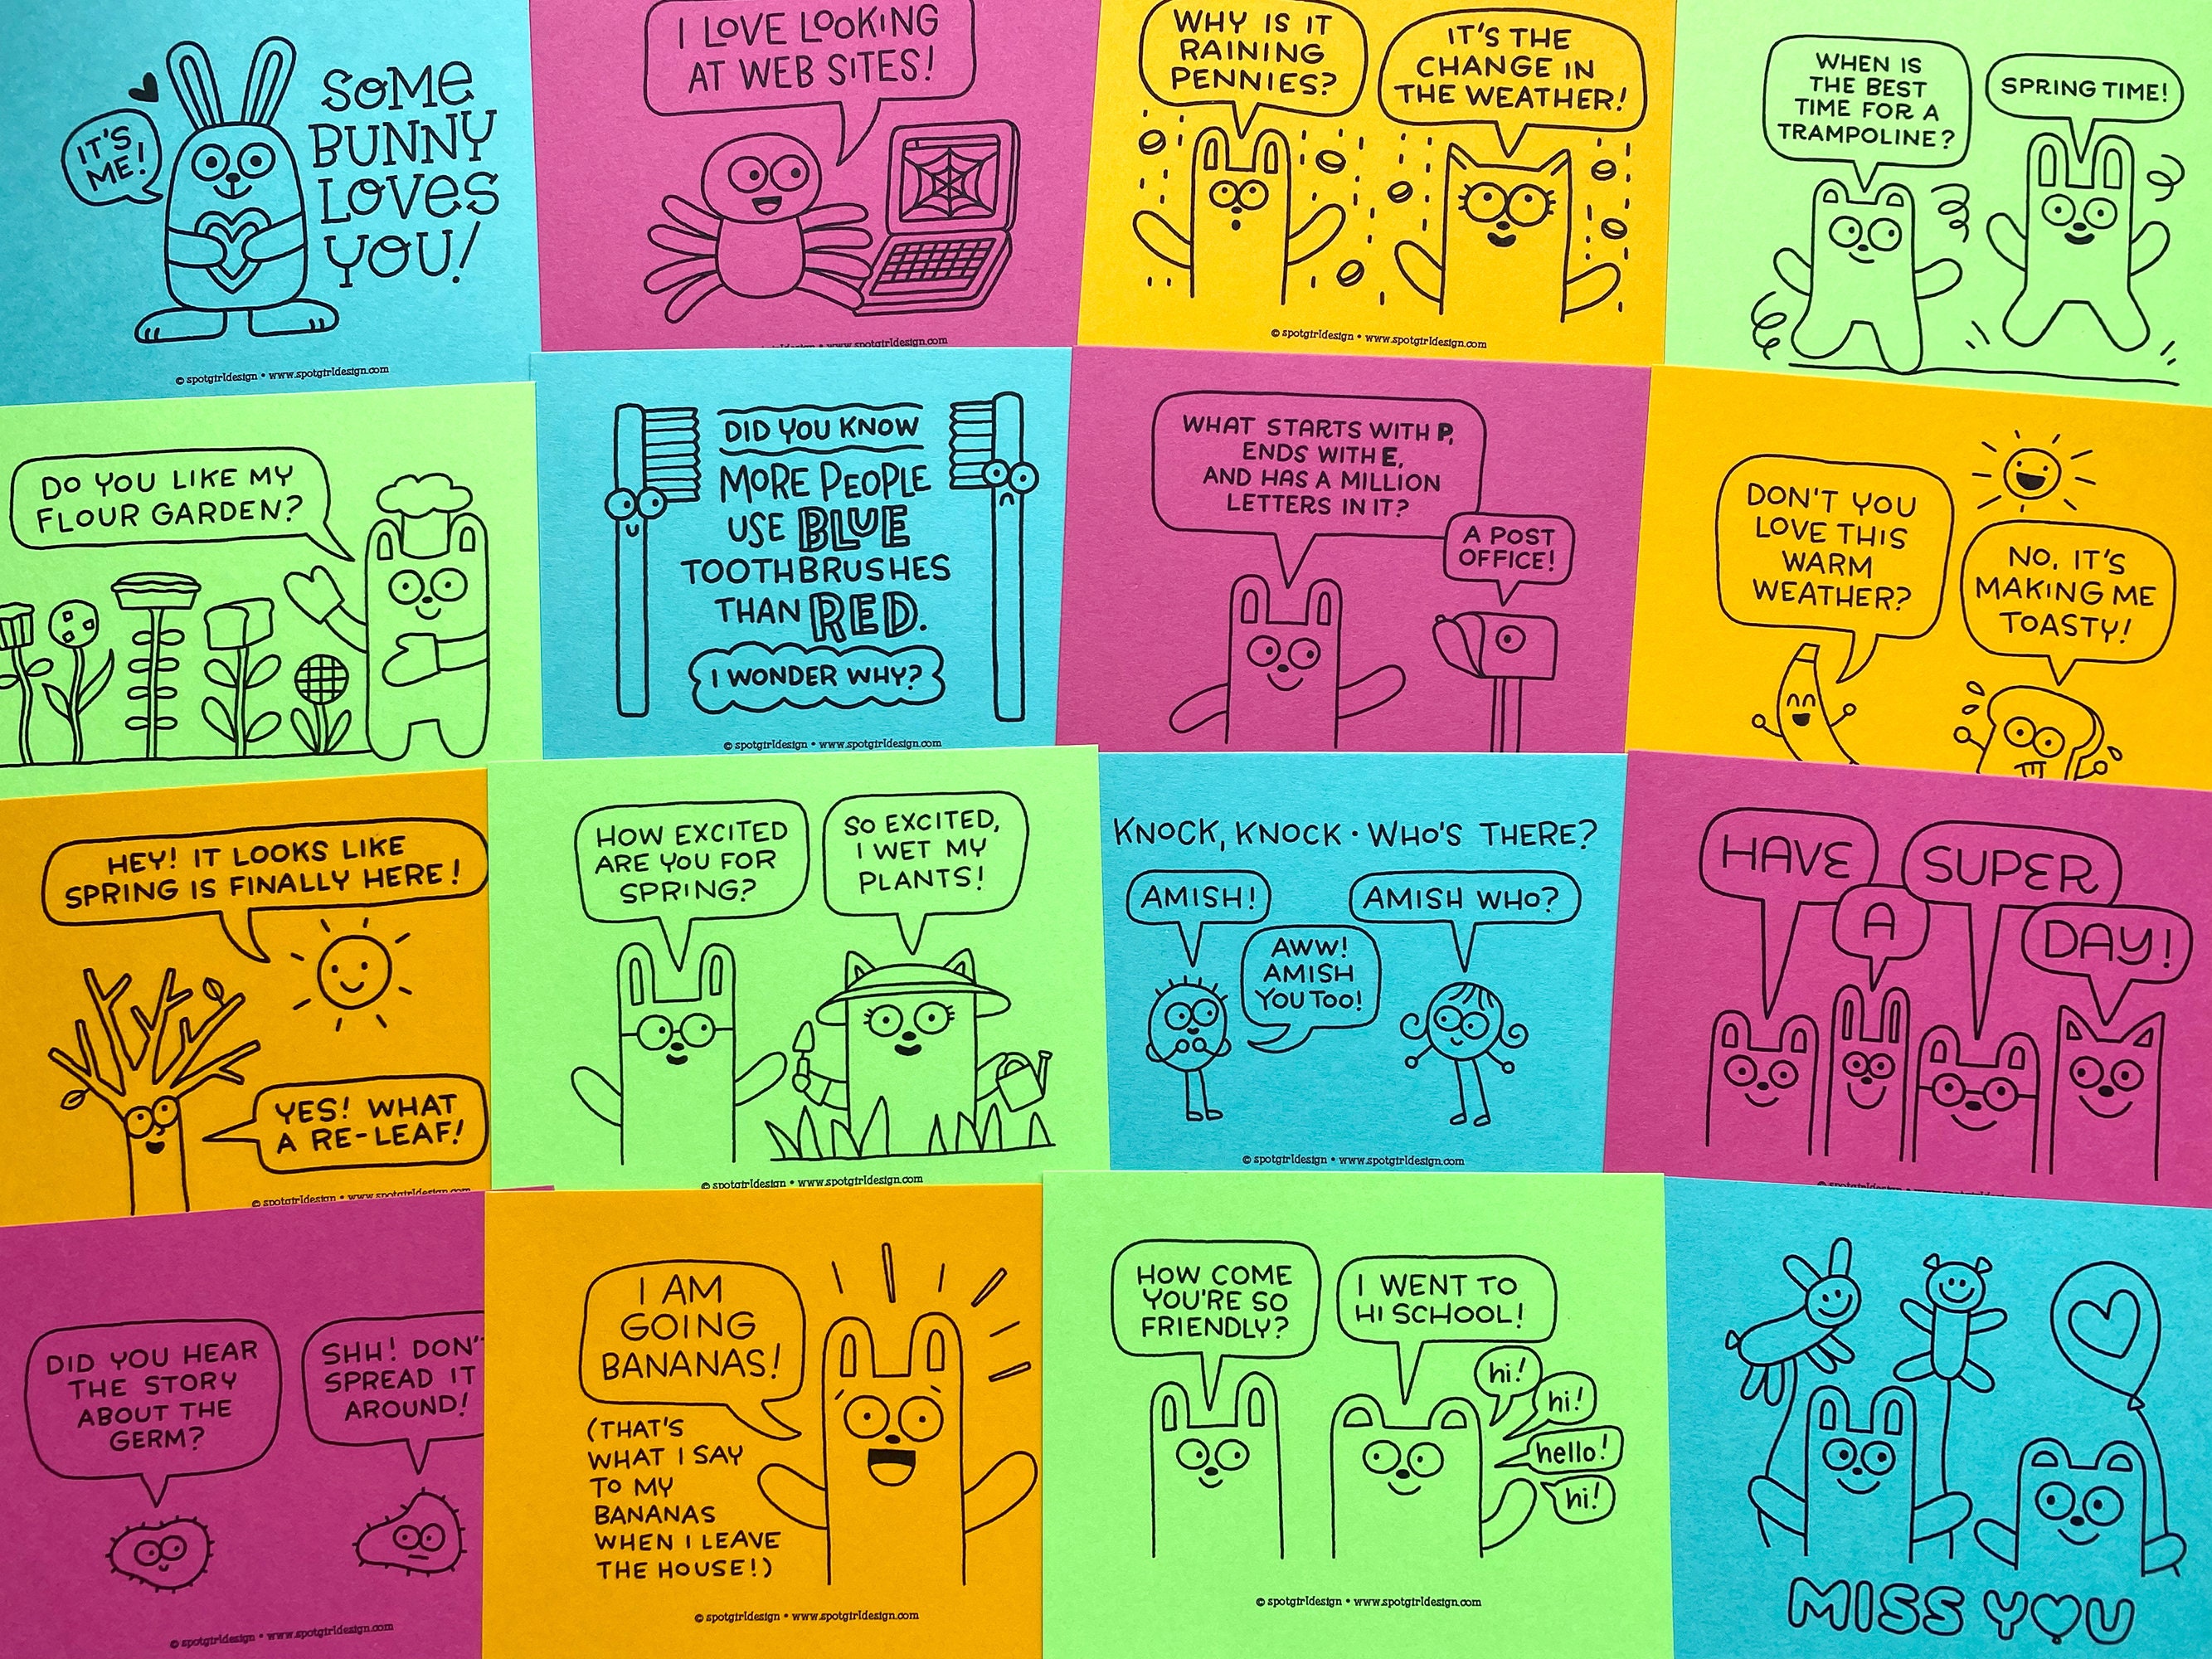 SOME
BUNNY
LOVES
YOU!
IT'S
ME!
© spotgirldesign • www.spotgirldesign.com
I LOVE LOOKING
AT WEB SITES!
• www.spotgirldesign.com
WHY IS IT
RAINING
PENNIES?
IT'S THE
CHANGE IN
THE WEATHER!
© spotgirldesign • www.spotgirldesign.com
WHEN IS
THE BEST
TIME FOR A
TRAMPOLINE?
SPRING TIME!
DO YOU LIKE MY
FLOUR GARDEN?
DID YOU KNOW
MORE PEOPLE
USE BLUE
TOOTHBRUSHES
THAN RED.
I WONDER WHY?
© spotgirldesign • www.spotgirldesign.com
WHAT STARTS WITH P,
ENDS WITH E,
AND HAS A MILLION
LETTERS IN IT?
A POST
OFFICE!
DON'T YOU
LOVE THIS
WARM
WEATHER?
NO, IT'S
MAKING ME
TOASTY!
HEY! IT LOOKS LIKE
SPRING IS FINALLY HERE!
YES! WHAT
A RE-LEAF!
© spotgirldesign • www.spotgirldesign.com
HOW EXCITED
ARE YOU FOR
SPRING?
SO EXCITED,
I WET MY
PLANTS!
© spotgirldesign • www.spotgirldesign.com
KNOCK, KNOCK • WHO'S THERE?
AMISH!
AMISH WHO?
AWW!
AMISH
YOU TOO!
© spotgirldesign • www.spotgirldesign.com
HAVE
A
SUPER
DAY!
DID YOU HEAR
THE STORY
ABOUT THE
GERM?
SHH! DON'
SPREAD IT
AROUND!
© spotgirldesign • www.spotgirldesign.com
I AM
GOING
BANANAS!
(THAT'S
WHAT I SAY
TO MY
BANANAS
WHEN I LEAVE
THE HOUSE!)
© spotgirldesign • www.spotgirldesign.com
HOW COME
YOU'RE SO
FRIENDLY?
I WENT TO
HI SCHOOL!
hi!
hi!
hello!
hi!
© spotgirldesign • www.spotgirldesign.com
MISS YOU